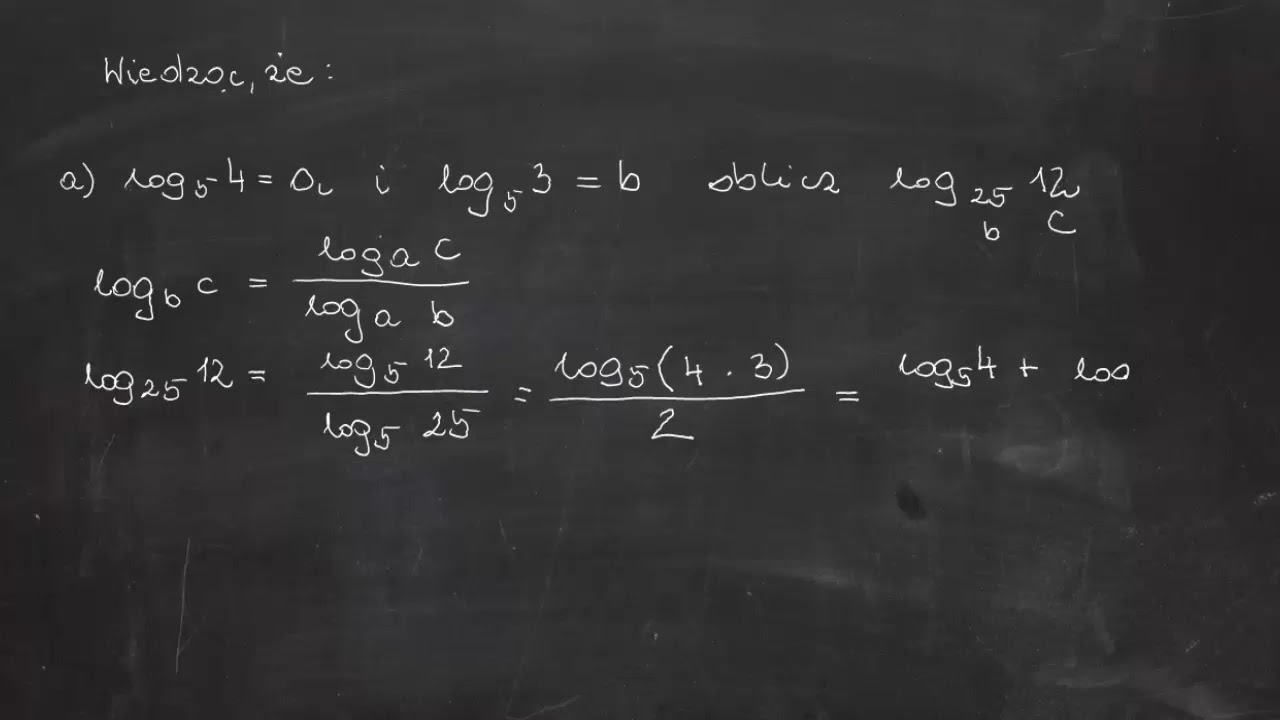 Wiedząc, że:
a) log₅4 = a i log₅3 = b oblicz log₂₅ 12
b c
log_b c = log_a c / log_a b
log₂₅ 12 = log₅ 12 / log₅ 25 = log₅(4 · 3) / 2 = log₅4 + loo